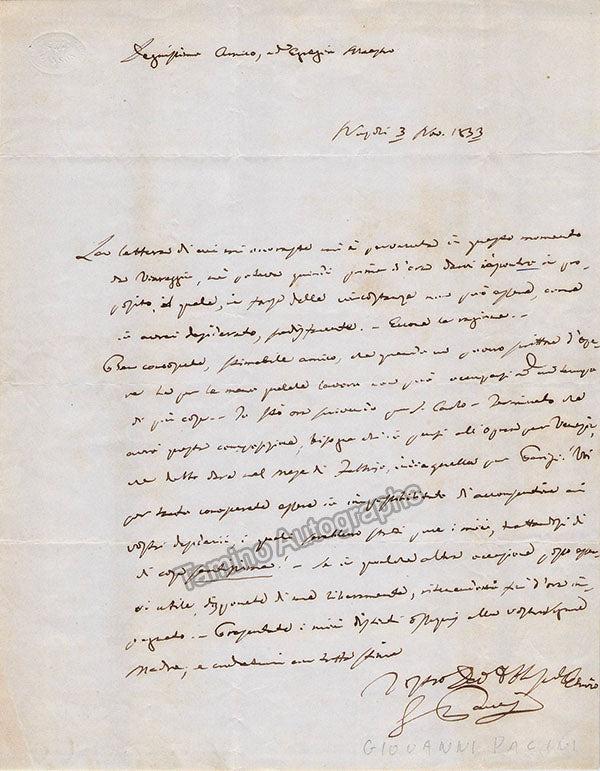 Degnissimo Amico, ed Egregio Maestro
Napoli 3 Nov. 1833
La lettera di cui mi onoraste mi è pervenuta in questo momento
da Viareggio, nè poteva quindi prima d'ora darvi risposta in pro-
posito, il quale, in forza delle circostanze non può essere, come
io avrei desiderato, soddisfacente. - Eccone la ragione. -
Ben conoscete, stimabile amico, che quando un povero scrittore d'ope-
re ha per le mani qualche lavoro non può occuparsi ad un tempo
di più cose. - Io sto ora scrivendo per S. Carlo - Terminato che
avrò questa composizione, bisogna che io pensi all'Opera per Venezia,
che debbo dare nel mese di Febbrajo, indi a quella per Parigi. Voi
per tanto conoscerete essere in impossibilitato di accondiscendere ai
vostri desiderii, i quali sarebbero stati pure i miei, trattandosi di
di cosa
Tamino Autographs
- Se in qualche altra occasione posso esser-
vi utile, disponete di me liberamente, ritenendomi fin d'ora im-
pegnato. - Presentate i miei distinti ossequj alla vostra Signora
Madre, e credetemi con tutta stima
Vostro
G. Pacini
GIOVANNI PACINI